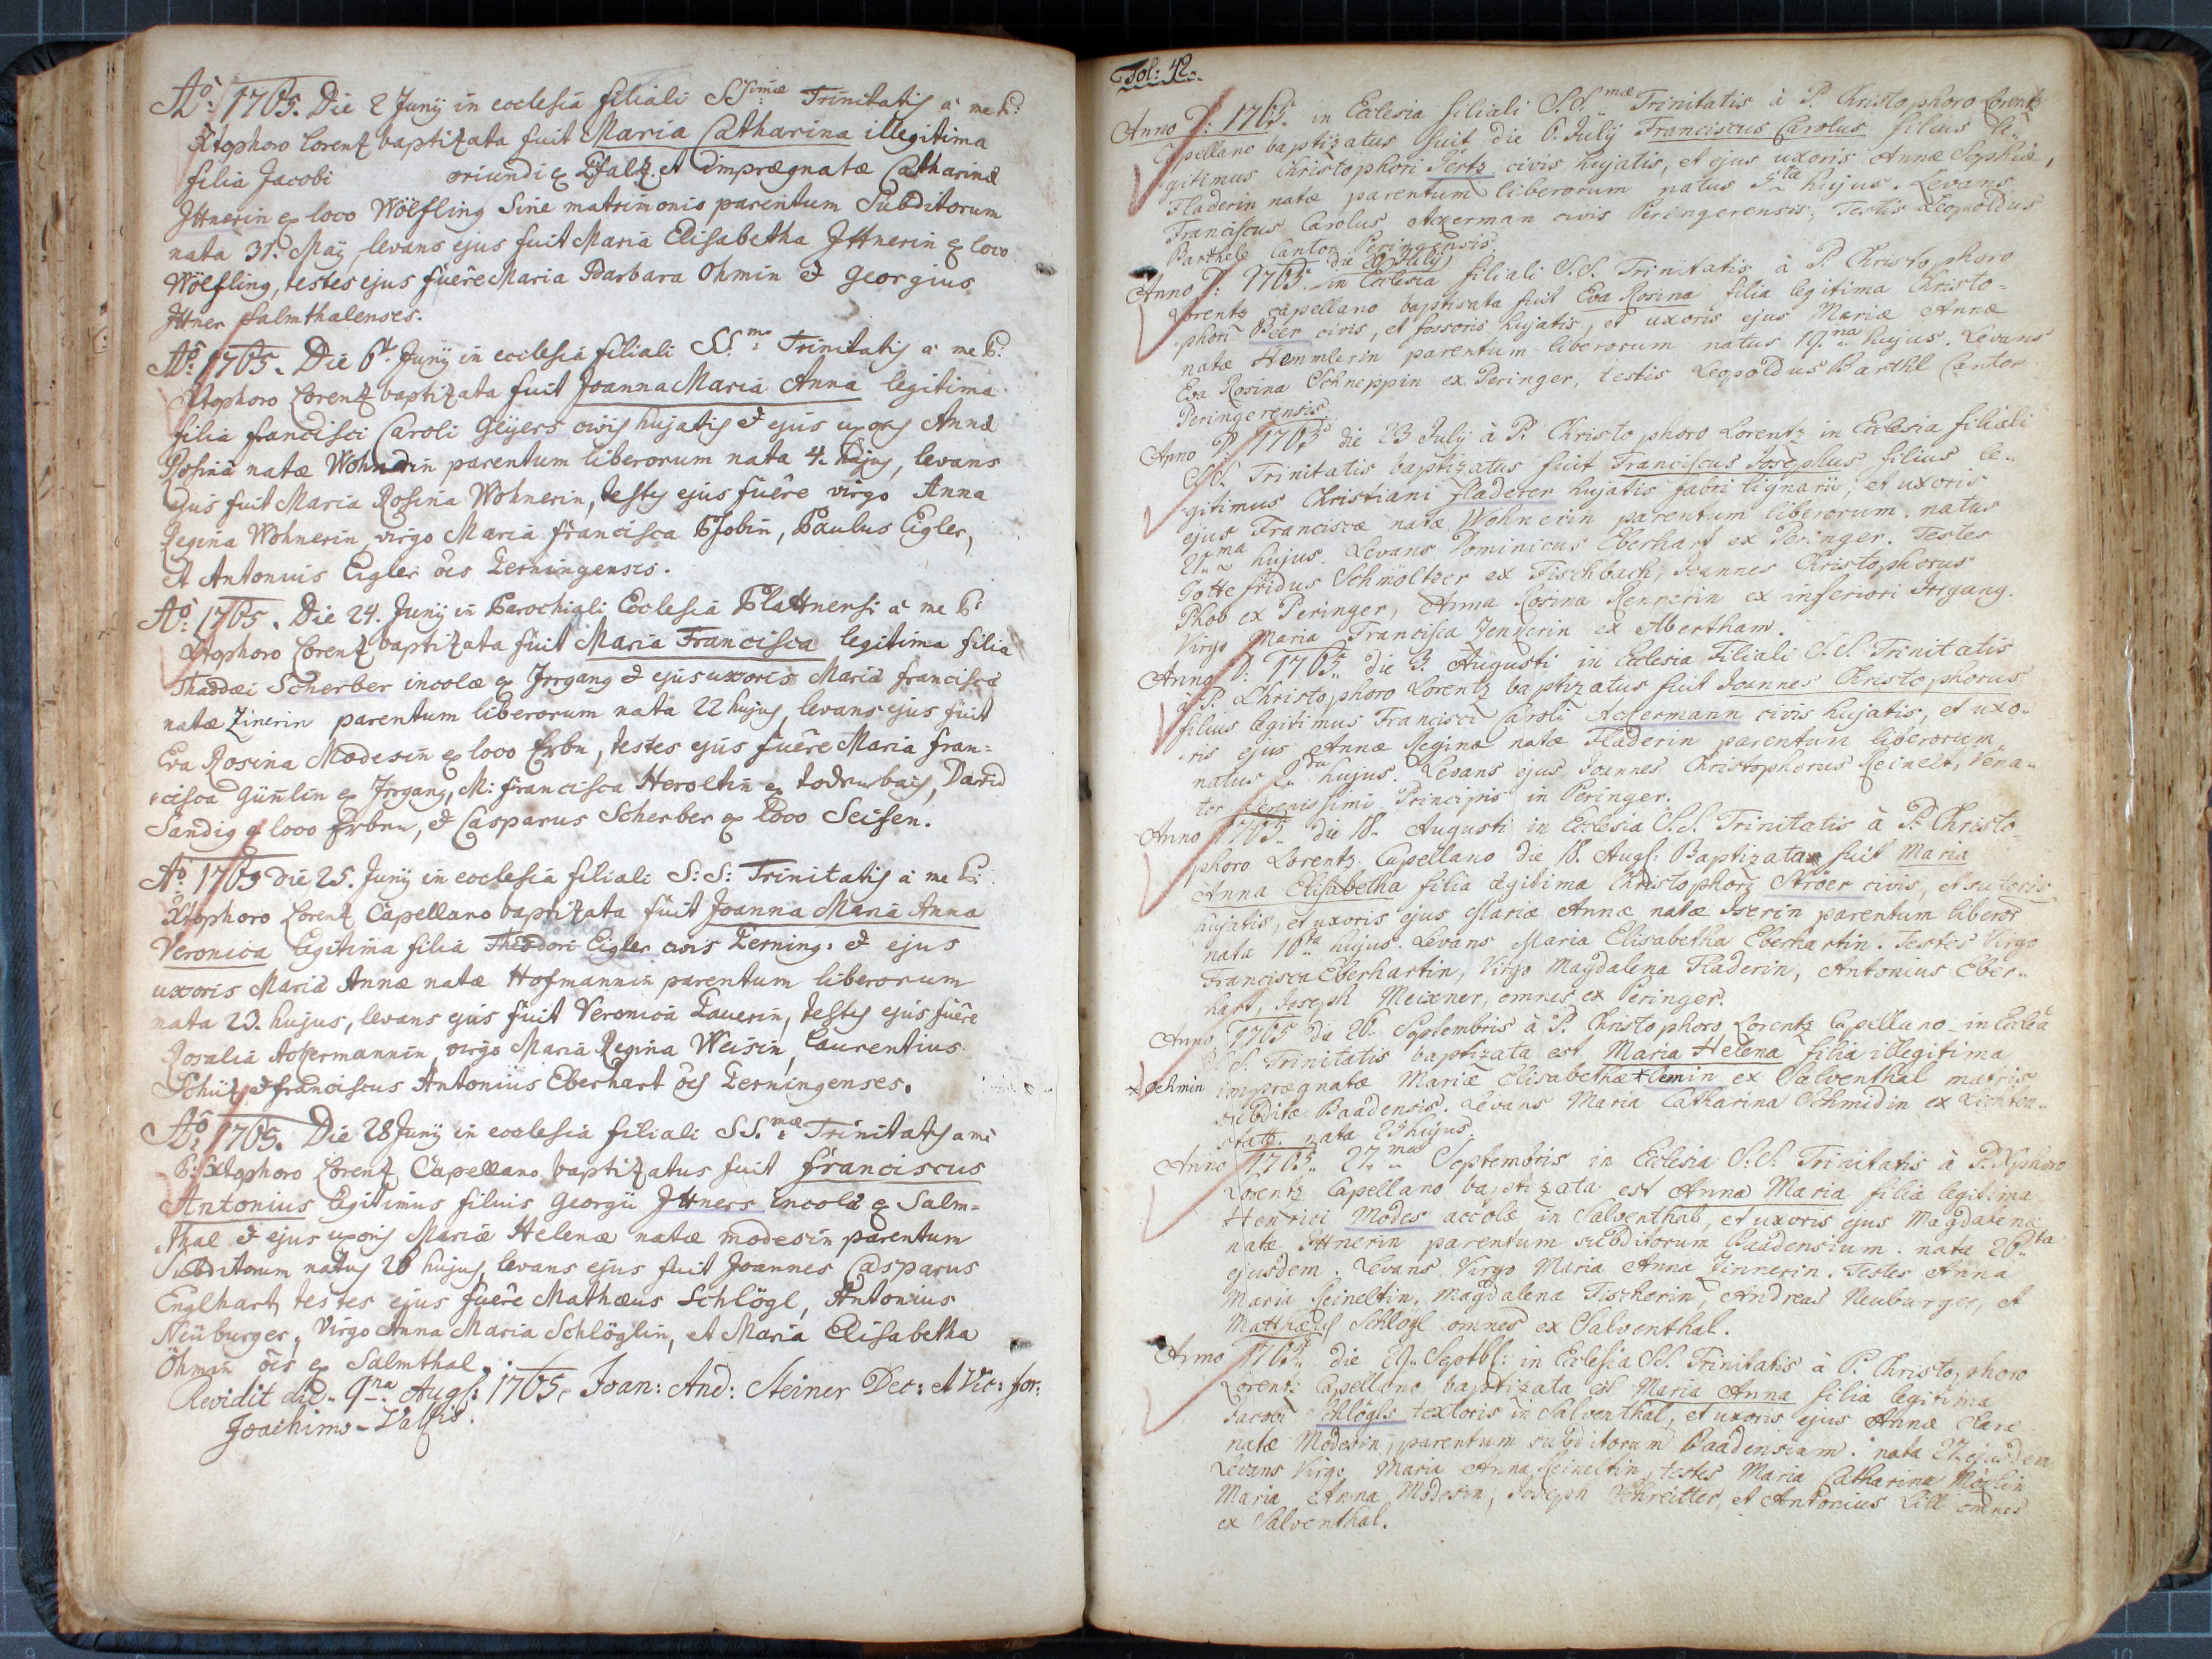 Aõ: 1765. Die 2 Junij in ecclesia filiali SSimæ Trinitatis a me P:
Xtophoro Lorentz baptizata fuit Maria Catharina illegitima
filia Jacobi oriundi ex Pfaltz et imprægnatæ Catharinæ
Ittnerin ex loco Wölfling Sine matrimonio parentum Subditorum
nata 31. Maÿ, levans ejus fuit Maria Elisabetha Ittnerin ex loco
Wölfling, testes ejus fuêre Maria Barbara Ohmin & Georgius
Ittner Salmthalenses.
Aõ: 1765. Die 6t. Junij in ecclesia filiali SS.mæ Trinitatis a me P:
Xtophoro Lorentz baptizata fuit Joanna Maria Anna legitima
filia francisci Caroli Geÿers civis hujatis & ejus uxoris Annæ
Rosina natæ Wohnerin parentum liberorum nata 4. hujus, levans
ejus fuit Maria Rosina Wohnerin, testes ejus fuêre virgo Anna
Regina Wohnerin, virgo Maria francisca Phobin, Paulus Eigler,
et Antonius Eigler ões Perningensis.
Aõ: 1765. Die 24. Junij in Parochiali Ecclesia Plattnensi a me P:
Xtophoro Lorentz baptizata fuit Maria Francisca legitima filia
Thaddæi Scherber incolæ ex Irrgang & ejus uxoris Maria francisca
natæ Zinerin parentum liberorum nata 22 hujus, levans ejus fuit
Eva Rosina Modesin ex loco Erbn, testes ejus fuêre Maria fran=
cisca Günlin ex Irrgang, M: francisca Heroltin ex bais, David
Sandig ex loco Erbn, & Casparus Scherber ex loco Seifen.
Aõ 1765 die 25. Junij in ecclesia filiali S: S: Trinitatis a me P:
Xtophoro Lorentz Capellano baptizata fuit Joanna Maria Anna
Veronica legitima filia Theodori Eigler civis Perning: & ejus
uxoris Maria Annæ natæ Hofmannin parentum liberorum
nata 23. hujus, levans ejus fuit Veronica Lauerin, testes ejus fuêre
Rosalia Ackermannin, virgo Maria Regina Weisin, Laurentius
Schütz & franciscus Antonius Eberhart ões Perningenses.
Aõ: 1765. Die 28 Junij in ecclesia filiali SS.mæ Trinitatis a me
P: Xtophoro Lorentz Capellano baptizatus fuit franciscus
Antonius legitimus filius Georgii Ittners incolæ ex Salm=
thal & ejus uxoris Mariæ Helenæ natæ modesin parentum
Subditorum natus 26 hujus, levans ejus fuit Joannes Casparus
Englhart, testes ejus fuêre Mathæus Schlögl, Antonius
Neüburger, Virgo Anna Maria Schlöglin, et Maria Elisabetha
Ohmin ões ex Salmthal.
Revidit die 9na Aug: 1765. Joan: And: Steiner Dec: et Vic: for:
Joachims-Vallis.
Fol: 42.
Anno D: 1765. in Ecclesia filiali S.S.mæ Trinitatis à P. Christophoro Lorentz
Capellano baptizatus fuit die 6. Julij Franciscus Carolus filius le-
gitimus Christophori Pertz civis hujatis, et ejus uxoris Annæ Sophiæ,
Fladerin natæ parentum liberorum natus 5tæ hujus. Levans
Franciscus Carolus Akerman civis Peringerensis, Testis Leopoldus
Barthel Cantor Peringensis.
Anno D: 1765. die 20 Julij in Ecclesia filiali S.S. Trinitatis à P. Christophoro
Lorentz capellano baptisata fuit Eva Rosina filia legitima Christo-
phori Beer civis, et fossoris hujatis, et uxoris ejus Mariæ Annæ
natæ Hemmlerin parentum liberorum natus 19.na hujus. Levans
Eva Rosina Schneppin ex Peringer, testis Leopoldus Barthl Cantor
Peringerensis.
Anno D: 1765 die 23 Julij à P. Christophoro Lorentz in Ecclesia filiali
S.S. Trinitatis baptizatus fuit Franciscus Josephus filius le-
gitimus Christiani Fladerer hujatis fabri lignarii, et uxoris
ejus Franciscæ natæ Wohnerin parentum liberorum. natus
21.ma hujus. Levans Dominicus Eberhart ex Peringer. Testes
Gottefridus Schmöltzer ex Fischbach, Joannes Christophorus
Phob ex Peringer, Anna Rosina Rennerin ex inferiori Irrgang.
Virgo Maria Francisca Jennerin ex Abertham.
Anno D. 1765. die 3. Augusti in Ecclesia Filiali S.S. Trinitatis
à P. Christophoro Lorentz baptizatus fuit Joannes Christophorus
filius legitimus Francisci Caroli Ackermann civis hujatis, et uxo-
ris ejus Annæ Reginæ natæ Fladerin parentum liberorum
natus 2.da hujus. Levans ejus Joannes Christophorus Reinelt, Vena-
tor Serenissimi Principis in Peringer.
Anno 1765. die 18. Augusti in Ecclesia S.S. Trinitatis à P. Christo-
phoro Lorentz Capellano die 18. Augs: Baptizata fuit Maria
Anna Elisabetha filia legitima Christophori Ströer civis, et sutoris
hujatis, et uxoris ejus Mariæ Annæ natæ Iserin parentum liberor
nata 16ta hujus. Levans Maria Elisabetha Eberhartin. Testes Virgo
Francisca Eberhartin, Virgo Magdalena Fladerin, Antonius Eber-
hart, Joseph Meixner, omnes ex Peringer.
Anno 1765 die 26. Septembris à P. Christophoro Lorentz Capellano in Eccleâ
S.S. Trinitatis baptizata est Maria Helena filia illegitima
* Oehmin imprægnatæ Mariæ Elisabethæ * Oemin ex Salventhal matris
subditæ Baadensis. Levans Maria Catharina Schmidin ex Lichten-
statt. nata 25 hujus.
Anno 1765. 27.ma Septembris in Ecclesia S.S. Trinitatis à P. Xphoro
Lorentz Capellano baptizata est Anna Maria filia legitima
Henrici Modes accolæ in Salventhal, et uxoris ejus Magdalenæ
natæ Ittnerin parentum subditorum Baadensium. nata 26.ta
ejusdem. Levans Virgo Maria Anna Zinnerin. Testes Anna
Maria Reineltin, Magdalena Fischerin, Andreas Neuburger, et
Mathæus Schlögl omnes ex Salventhal.
Anno 1765. die 29. Septbs: in Ecclesia SS. Trinitatis à P. Christophoro
Lorentz Capellano baptizata est Maria Anna filia legitima
Jacobi Schlögls textoris in Salventhal, et uxoris ejus Annæ Claræ
natæ Modesin, parentum subditorum Baadensium. nata 27. ejusdem
Levans Virgo Maria Anna Reineltin, testes Maria Catharina Möslin
Maria Anna Modesin, Joseph Schreitter, et Antonius Lill omnes
ex Salventhal.